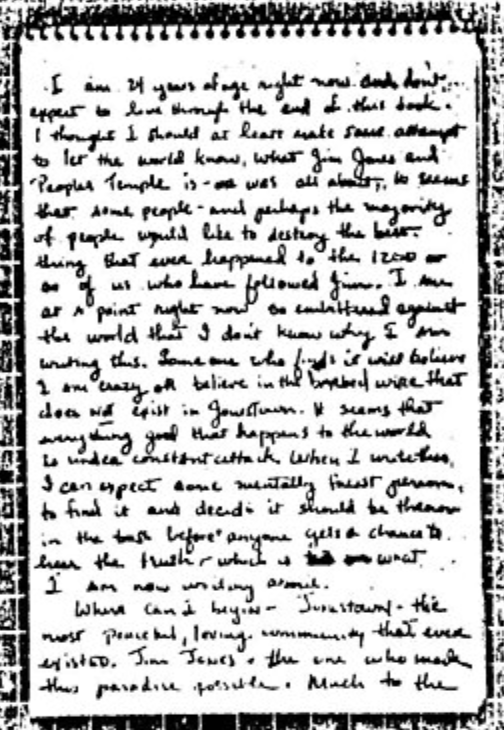 I am 24 years of age right now and don't
expect to live through the end of this book.
I thought I should at least make some attempt
to let the world know, what Jim Jones and
Peoples Temple is - or was all about, It seems
that some people - and perhaps the majority
of people would like to destroy the best
thing that ever happened to the 1200 or
so of us who have followed Jim. I am
at a point right now so embittered against
the world that I don't know why I am
writing this. Someone who finds it will believe
I am crazy or believe in the barbed wire that
does NOT exist in Jonestown. It seems that
everything good that happens to the world
is under constant attack. When I write this,
I can expect some mentally fascist person,
to find it and decide it should be thrown
in the trash before anyone gets a chance to
hear the truth - which is what
I am now writing about.
Where can I begin - Jonestown - the
most peaceful, loving community that ever
existed. Jim Jones - the one who made
this paradise possible. Much to the